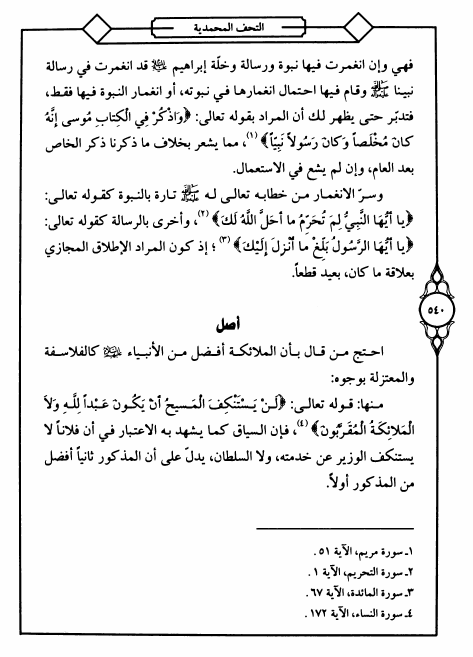 التحف المحمدية
فهي وإن انغمرت فيها نبوة ورسالة وخلّة إبراهيم ﵇ قد انغمرت في رسالة
نبينا ﷺ وقام فيها احتمال انغمارها في نبوته، أو انغمار النبوة فيها فقط،
فتدبّر حتى يظهر لك أن المراد بقوله تعالى: ﴿وَاذْكُرْ فِي الْكِتابِ مُوسى إِنَّهُ
كانَ مُخْلَصاً وَكانَ رَسُولاً نَبِيّاً﴾ (١)، مما يشعر بخلاف ما ذكرنا ذكر الخاص
بعد العام، وإن لم يشع في الاستعمال.
وسرّ الانغمار من خطابه تعالى له ﷺ تارة بالنبوة كقوله تعالى:
﴿يا أَيُّهَا النَّبِيُّ لِمَ تُحَرِّمُ ما أَحَلَّ اللَّهُ لَكَ﴾ (٢)، وأخرى بالرسالة كقوله تعالى:
﴿يا أَيُّهَا الرَّسُولُ بَلِّغْ ما أُنْزِلَ إِلَيْكَ﴾ (٣)؛ إذ كون المراد الإطلاق المجازي
بعلاقة ما كان، بعيد قطعاً.
٥٤٠
أصل
احتج من قال بأن الملائكة أفضل من الأنبياء كالفلاسفة
والمعتزلة بوجوه:
منها: قوله تعالى: ﴿لَنْ يَسْتَنْكِفَ الْمَسيحُ أَنْ يَكُونَ عَبْداً لِلَّهِ وَلاَ
الْمَلائِكَةُ الْمُقَرَّبُونَ﴾ (٤)، فإن السياق كما يشهد به الاعتبار في أن فلاناً لا
يستنكف الوزير عن خدمته، ولا السلطان، يدلّ على أن المذكور ثانياً أفضل
من المذكور أولاً.
١ـ سورة مريم، الآية ٥١.
٢ـ سورة التحريم، الآية ١.
٣ـ سورة المائدة، الآية ٦٧.
٤ـ سورة النساء، الآية ١٧٢.